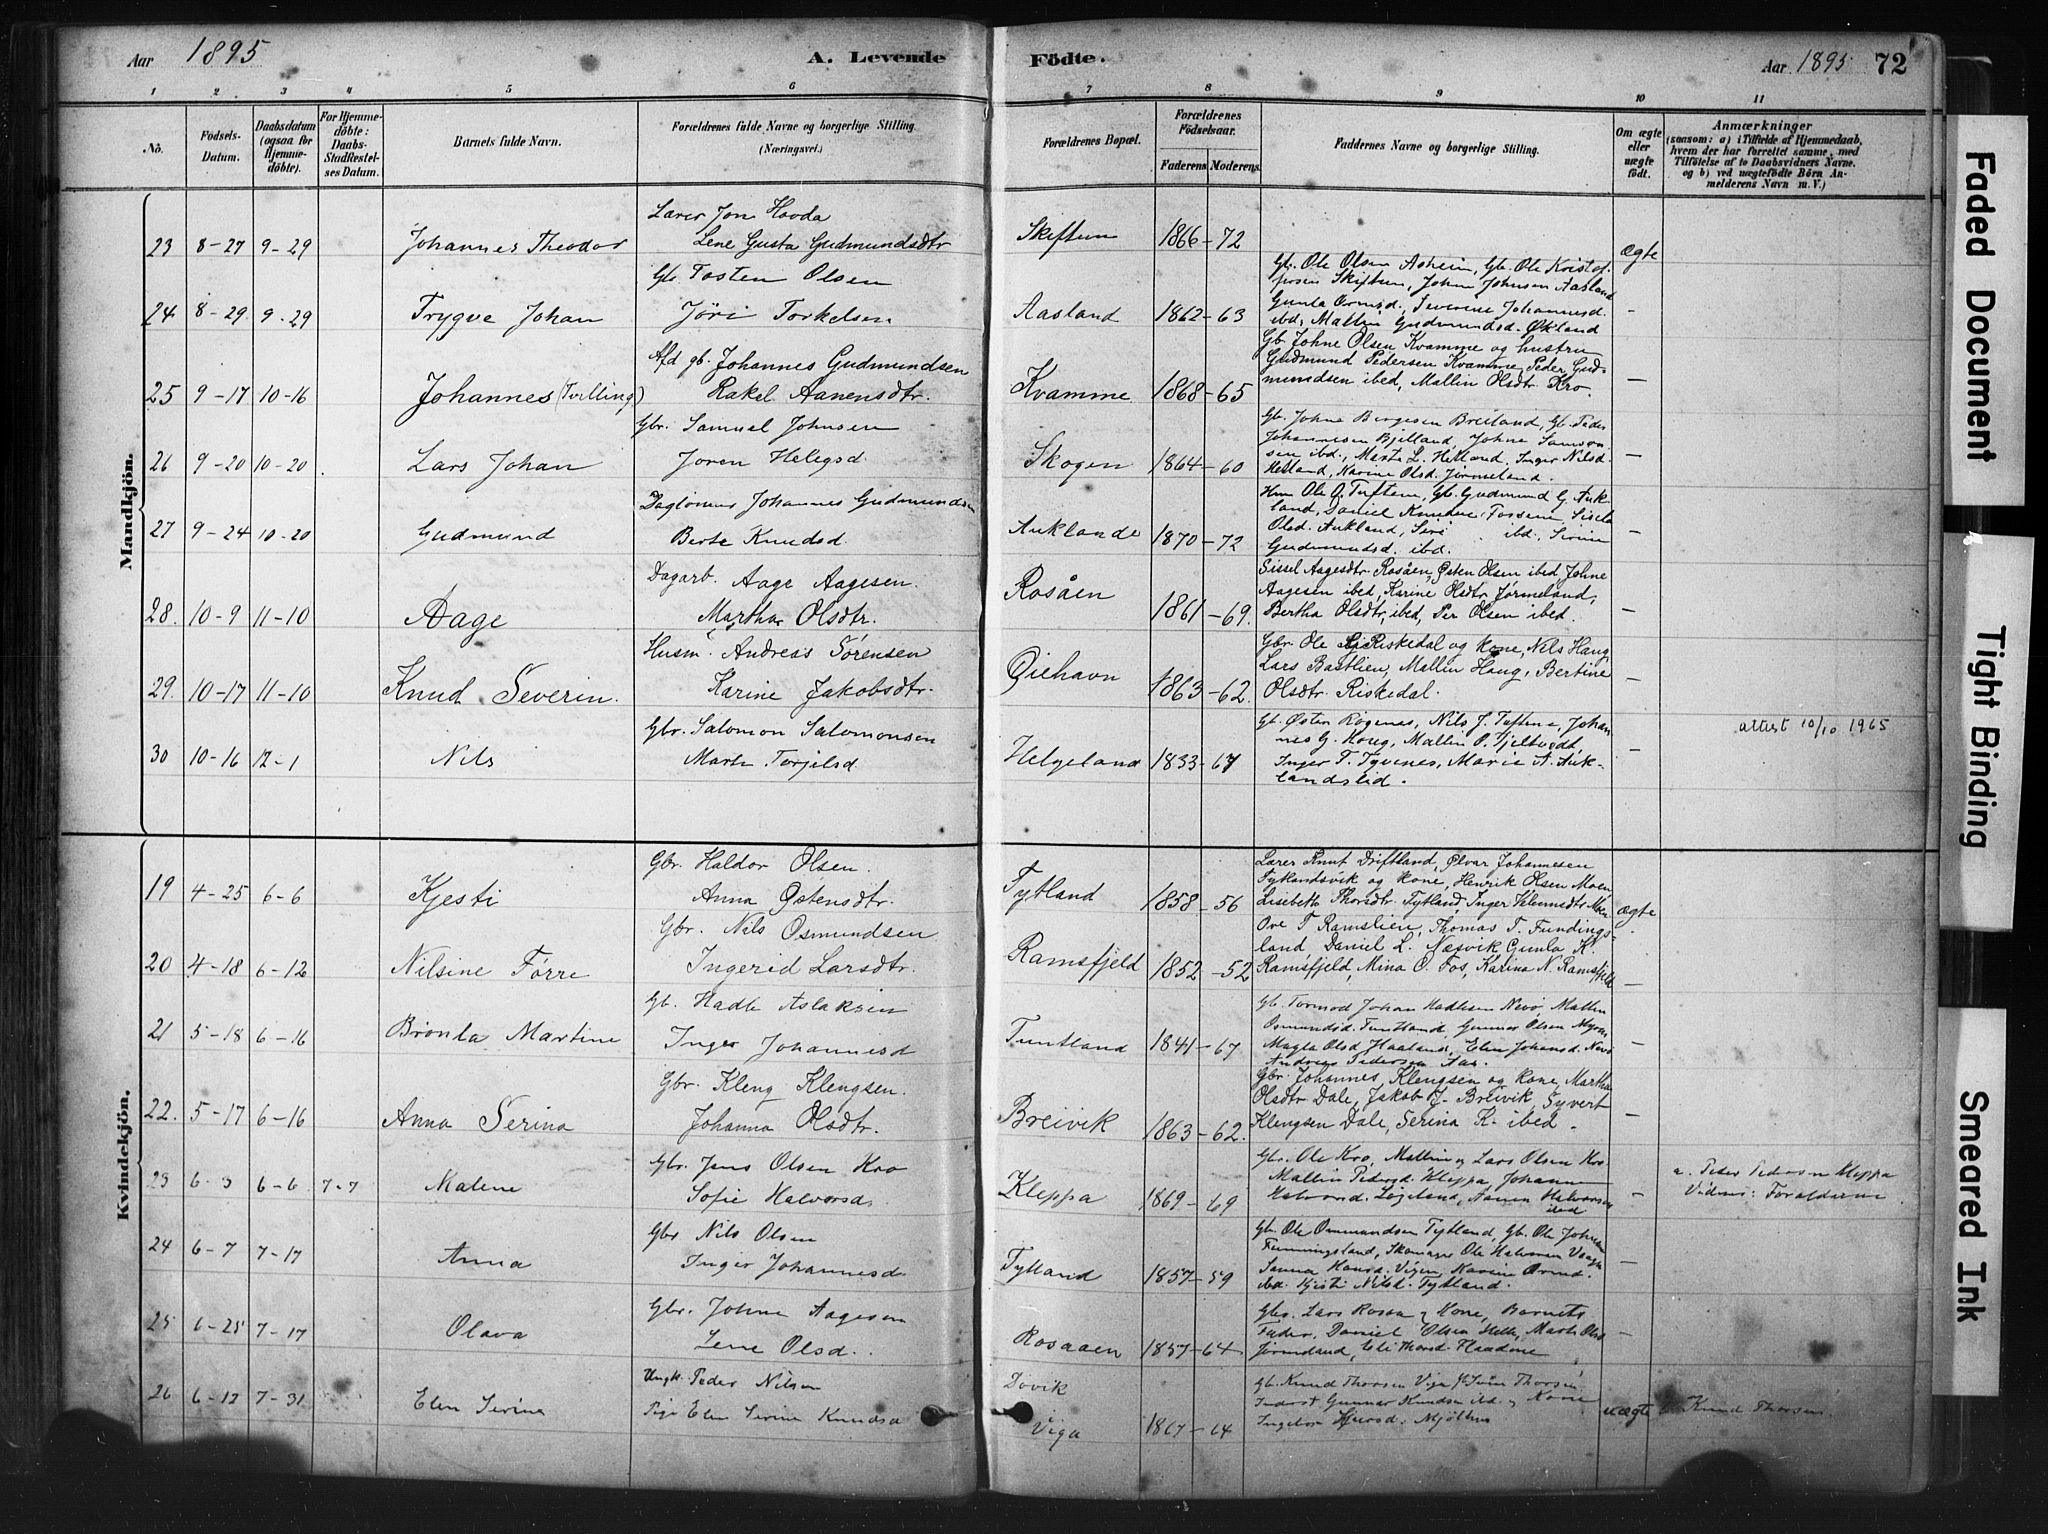 Aar 1895
A. Levende Födte.
Aar 1895 72
1 2 3 4 5 6 7 8 9 10 11
No.
Födsels-Datum.
Daabsdatum (ogsaa for Hjemme-döbte).
For Hjemme-döbte: Daabs-Stadfæstel-ses Datum.
Barnets fulde Navn.
Forældrenes fulde Navne og borgerlige Stilling. (Næringsvei.)
Forældrenes Bopæl.
Forældrenes Födselsaar.
Faderens. Moderens.
Faddernes Navne og borgerlige Stilling.
Om ægte eller uægte födt.
Anmærkninger
(saasom: a) i Tilfælde af Hjemmedaab, hvem der har forrettet samme, med Tilföielse af to Daabsvidners Navne. og b) ved uægtefödte Börn An-melderens Navn m. V.)
Mandkjön.
23 8-27 9-29 Johannes Theodor
Lærer Jon Hovda
Lene Gusta Gudmundsdtr
Skiftun 1866-72 Ægte
24 8-29 9-29 Trygve Johan
Gb. Tosten Olsen
Jöri Torkelsen
Aasland 1862-63
Gb. Ole Olsen Asheim, Gb. Ole Kristof-
fersen Skiftun, John Johnsen Aasland
Gunla Ormsd., Severine Johannesd.
ibd, Mallin Gudmundsd. Økland
-
25 9-17 10-16 Johannes (Tvilling)
Afd gb. Johannes Gudmundsen
Rakel Aanensdtr.
Kvamme 1868-65
Gb. Johne Olsen Kvamme og hustru
Gudmund Pedersen Kvamme, Peder Gud-
mundsen ibed, Mallin Olsdtr. Kro.
-
26 9-20 10-20 Lars Johan
Gbr. Samuel Johnsen
Joren Helegsd.
Skogen 1864-60
Gb. Johne Børgesen Breiland, Gb. Peder
Johannesen Bjelland, Johne Samson
sen ibd., Marta L. Hetland, Inger Nilsd.
Hetland, Karine Olsd. Jørmeland.
-
27 9-24 10-20 Gudmund
Daglönner Johannes Gudmundsen
Berte Knudsd.
Auklande 1870-72
Hm Ole O. Tuftene, Gb. Gudmund G. Auk-
land, Daniel Knudsen Fossene, Sisela
Olsd. Aukland, Siri ibd., Serine
Gudmundsd. ibd.
-
28. 10-9 11-10 Aage
Dagarb. Aage Aagesen.
Martha Olsdtr.
Rosåen 1861-69.
Sissel Aagesdtr Rosåen, Østen Olsen ibed, Johne
Aagesen ibed, Karine Olsdtr Jørmeland,
Bertha Olsdtr, ibed, Per Olsen ibed.
-
29. 10-17 11-10 Knud Severin.
Husm. Andreas Sørensen
Karine Jakobsdtr.
Øiehavn 1863-62.
Gbr. Ole Riskedal og kone, Nils Haug
Lars Bastlien, Mallin Haug, Bertine
Olsdtr. Riskedal.
-
30 10-16 12-1 Nils
Gbr. Salomon Salomonsen
Marta Torjilsd
Helgeland 1833-67
Gb. Østen Røgenes, Nils J. Tuftene, Johan
nes G. Haug, Mallin O. Fjeltvedt,
Inger T. Tyvenes, Marie A. Auk-
landslid.
-
attest 10/10 1965
Kvindekjön.
19 4-25 6-6 Kjesti
Gbr. Haldor Olsen.
Anna Østensdtr.
Tytland 1858-56
Lærer Knut Driftland, Ølvar Johannesen
Tytlandsvik og kone, Henrik Olsen Moen
Lisebeth Thorsdtr. Tytland, Inger Moen
Ægte
20 4-18 6-12 Nilsine Förre
Gbr. Nils Osmundsen
Ingerid Larsdtr.
Ramsfjeld 1852-52
Ove T Ramslien, Thomas T. Fundings-
land, Daniel L. Næsvik, Gunla K.
Ramsfjeld, Mina O. Fos, Karina N. Ramsfjeld
-
21 5-18 6-16 Brönla Martine
Gb. Hadle Aslaksen
Inger Johannesd
Tuntland 1841-67
Gb. Tormod Johan Hadlesen Nevö, Mallin
Osmundsd. Tuntland, Gunnar Olsen Myren
Magla Olsd Haaland, Elen Johansd. Nevö
Andreas Pedersen Aas.
-
22. 5-17 6-16 Anna Serina
Gbr. Kleng Klengsen.
Johanna Olsdtr.
Breivik 1863-62.
Gbr. Johannes Klengsen og kone, Martha
Olsdtr Dale, Jakob J. Breivik, Syvert
Klengsen Dale, Serina K. ibed.
-
23 6-3 6-6 7-7 Malene
Gbr. Jens Olsen Kro
Sofie Halvorsd.
Kleppa 1869-69
Gbr. Ole Kro, Mallin og Lars Olsen Kro
Mallin Pedersd. Kleppa, Johanne
Halvorsd. Løgeland, Aanen Halvorsen
ibd
-
a. Peder Pedersen Kleppa
Vidner: Forældrene
24 6-7 7-17 Anna
Gbr Nils Olsen
Inger Johannesd.
Tytland 1857-59
Gb. Ole Osmundsen Tytland, Gb. Ole Johnsen
Funningsland, Skomager Ole Halvorsen Vaage
Sanna Hansd. Vigen, Karine Ormsd.
ibd. Kjesti Nilsd. Tytland.
-
25 6-25 7-17 Olava
Gbr. Johne Aagesen
Lene Olsd.
Rosaaen 1857-64
Gbr. Lars Rosaa og Kone, Barnets
Fader, Daniel Olsen Helle, Marta Olsd
Jörmeland, Eli Thorsd. Flaadene
-
26 6-12 7-31 Elen Serine
Ungk. Peder Nilsen
Pige Elen Serine Knudsd
Dovik
Viga 1867-64
Gb. Knud Thorsen Viga, Svein Thorsen
Inderst Gunnar Knudsen ibd. og Kone
Ingebor Mjølhus
uægte Knud Thorsen.
Faded Document
Tight Binding
Smeared Ink